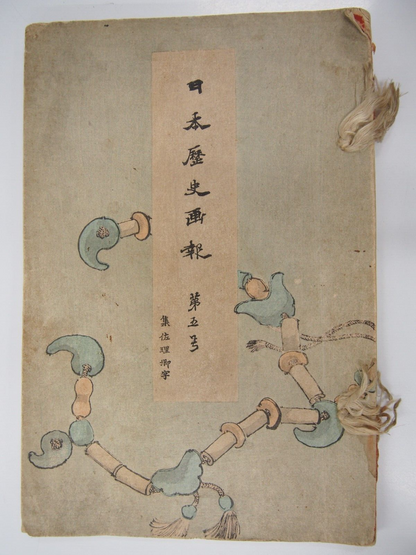 日本歴史画報 第五号
集佐理御字